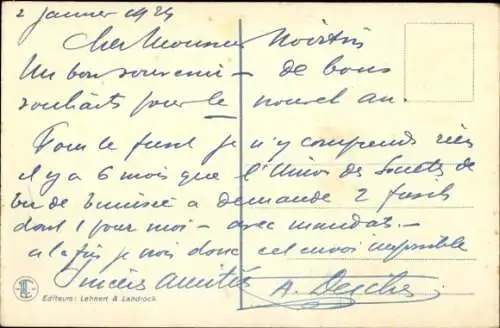 2 Janvier 1924
Cher Monsieur
Un bon souvenir – de bons
souhaits pour le nouvel an.
Pour le fusil je n'y comprends rien
il y a 6 mois que l'Union des Sociétés de
tir de Tunisie a demandé 2 fusils
dont 1 pour moi – avec mandat. –
a la fin je vois donc cet envoi impossible
Sincères Amitiés
A.
Editeurs: Lehnert & Landrock.